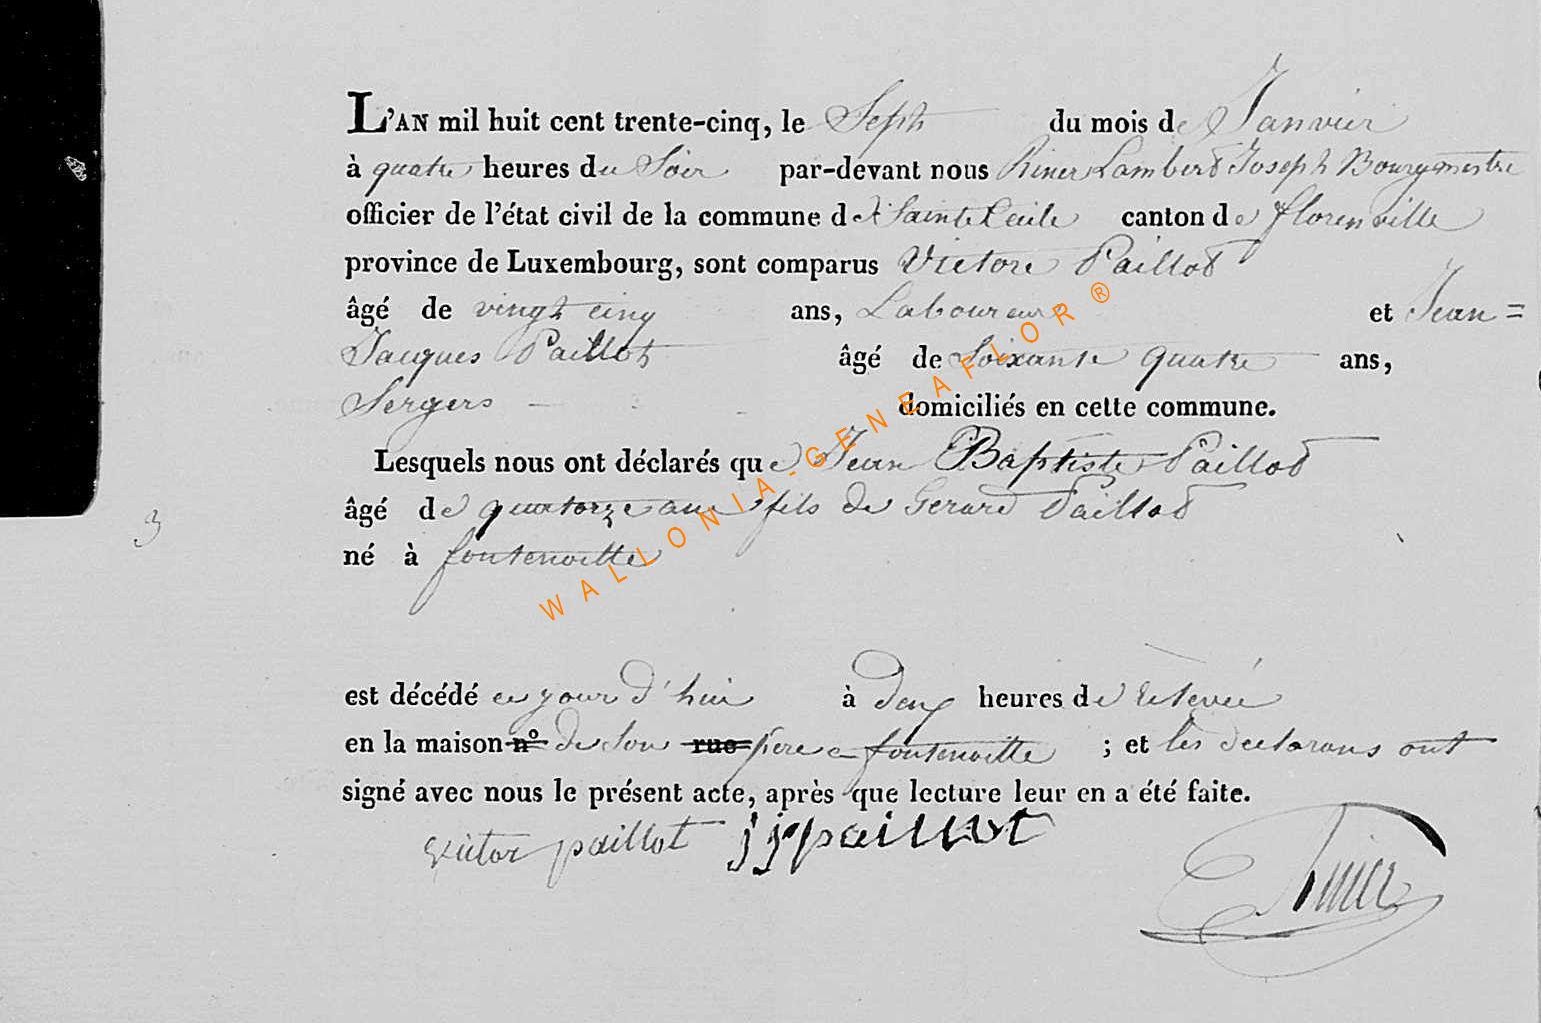 L'AN mil huit cent trente-cinq, le Seph du mois de Janvier
à quatre heures du Soir par-devant nous Riner Lambert Joseph Bourgmestre
officier de l'état civil de la commune de Sainte Cecile canton de florenville
province de Luxembourg, sont comparus Victore Paillot
âgé de vingt cinq ans, Laboureur et Jean=
Jacques Paillot âgé de Soixante quatre ans,
Sergers domiciliés en cette commune.
Lesquels nous ont déclarés que Jean Baptiste Paillot
âgé de quatorze ans fils de Gerard Paillot
3
né à fontenoille
est décédé ce jour d'hui à deux heures de relevée
en la maison n° de Son rue pere a fontenoille ; et les declarans ont
signé avec nous le présent acte, après que lecture leur en a été faite.
victor paillot jjpaillot
Riner
WALLONIA-GENEAFLOR®